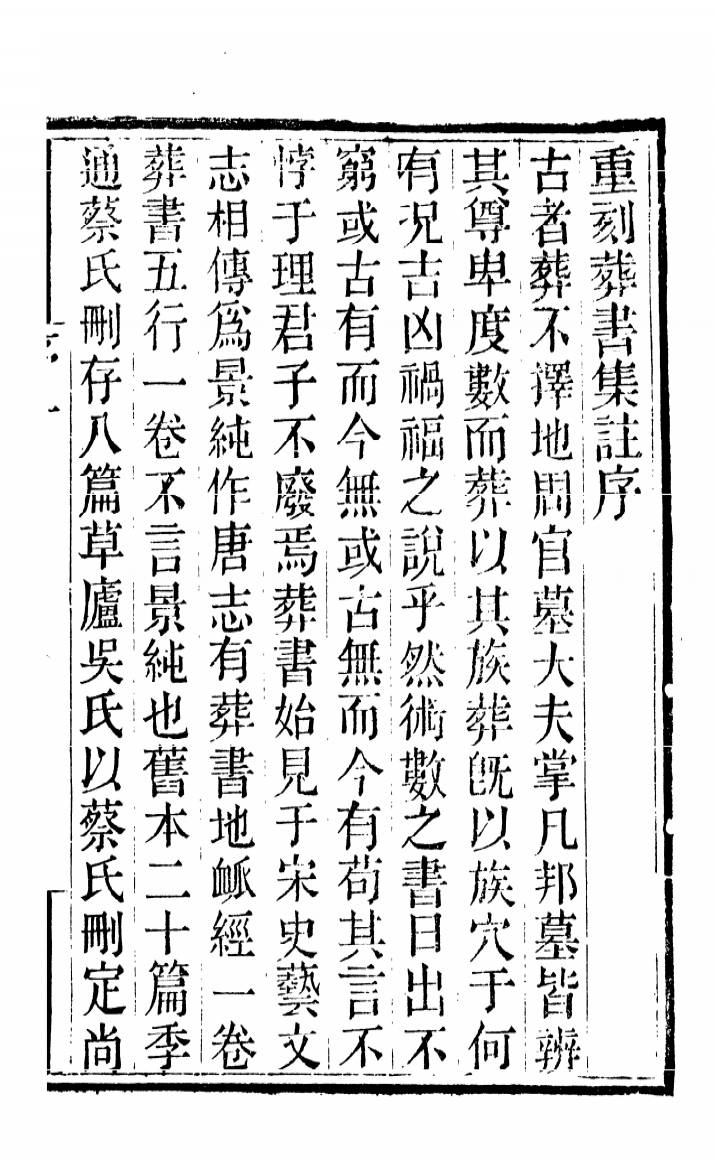 重刻葬書集註序
古者葬不擇地周官墓大夫掌凡邦墓皆辨
其尊卑度數而葬以其族葬旣以族穴于何
有况吉凶禍福之說乎然術數之書日出不
窮或古有而今無或古無而今有苟其言不
悖于理君子不廢焉葬書始見于宋史藝文
志相傳爲景純作唐志有葬書地衇經一卷
葬書五行一卷不言景純也舊本二十篇季
通蔡氏刪存八篇草廬吳氏以蔡氏刪定尚
序
一